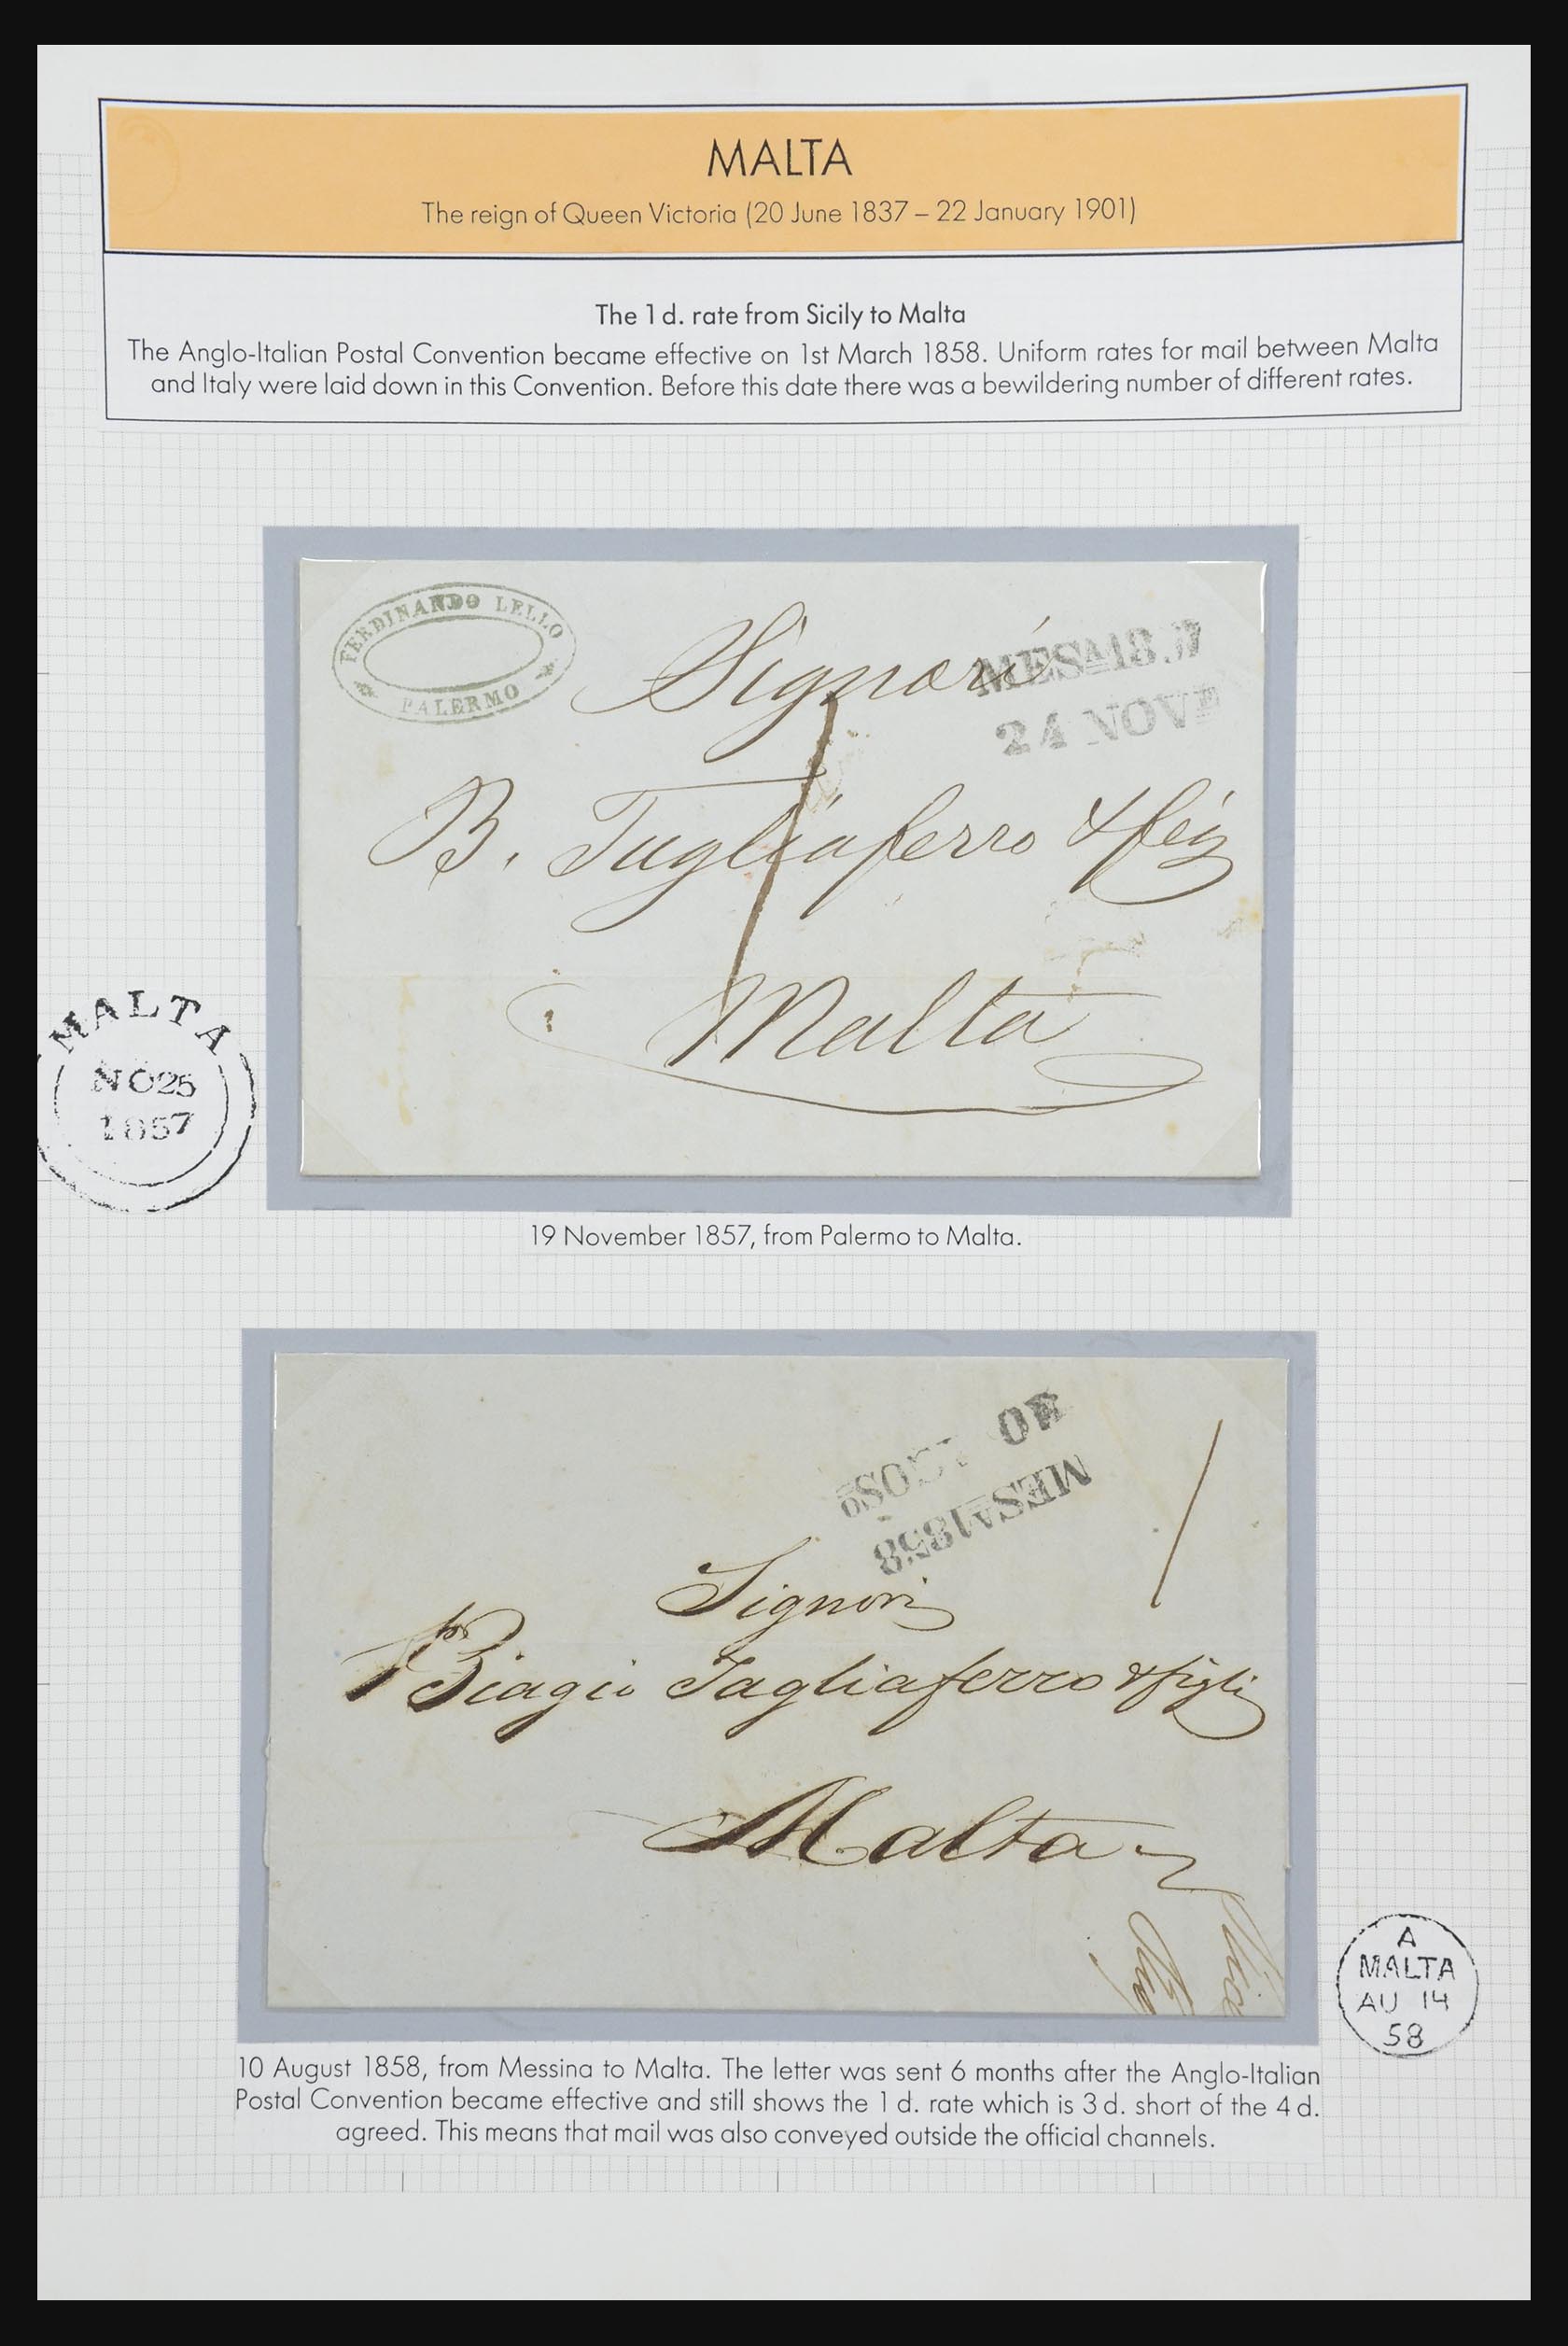 MALTA
The reign of Queen Victoria (20 June 1837 – 22 January 1901)
The 1 d. rate from Sicily to Malta
The Anglo-Italian Postal Convention became effective on 1st March 1858. Uniform rates for mail between Malta
and Italy were laid down in this Convention. Before this date there was a bewildering number of different rates.
FERDINANDO LELLO
PALERMO
Signori
24 NOVE
B. Tagliaferro & figi
1
Malta
MALTA
NO 25
1857
19 November 1857, from Palermo to Malta.
MESA1858
1
Signori
Biagio Tagliaferro & figli
Malta
A
MALTA
AU 14
58
10 August 1858, from Messina to Malta. The letter was sent 6 months after the Anglo-Italian
Postal Convention became effective and still shows the 1 d. rate which is 3 d. short of the 4 d.
agreed. This means that mail was also conveyed outside the official channels.